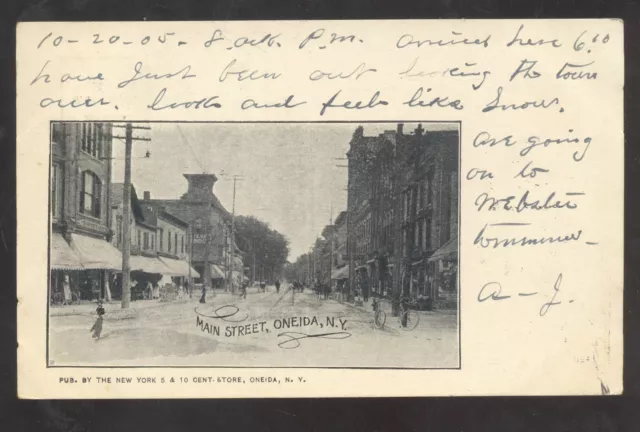 10-20-05- 8 ock. P.M. arrived here 6:10
have Just been out looking the town
over. looks and feels like Snow.
are going
on to
Webster
tommorrow-
A-J.
MAIN STREET, ONEIDA, N.Y.
PUB. BY THE NEW YORK 5 & 10 CENT-STORE, ONEIDA, N. Y.